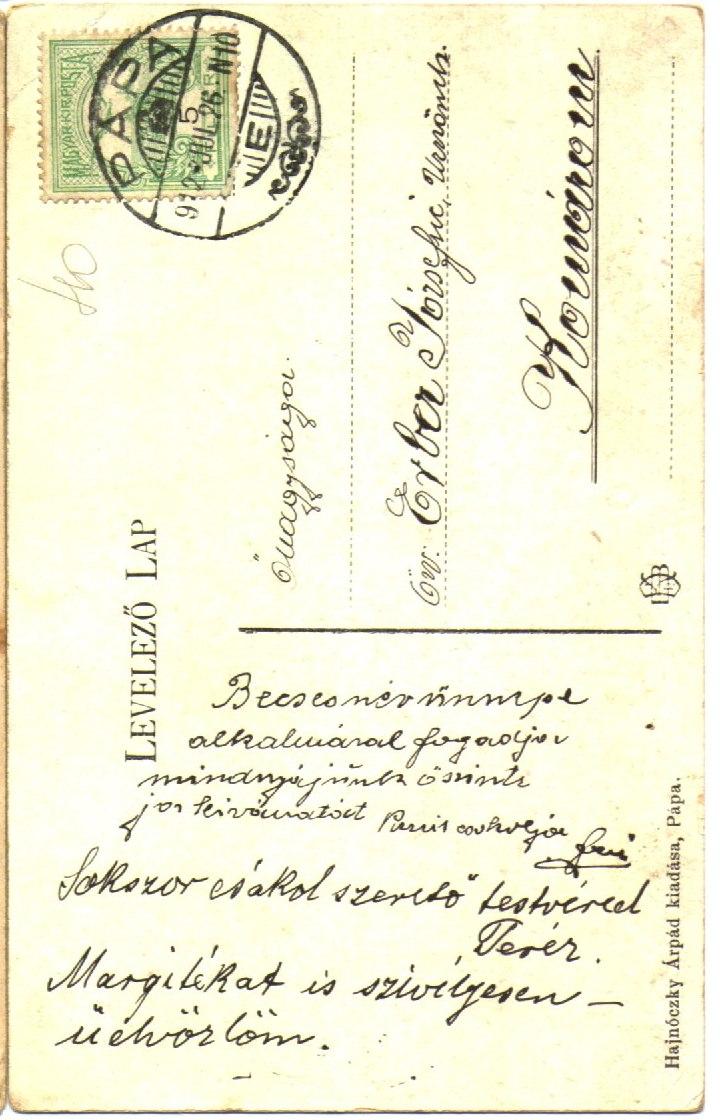 LEVELEZŐ LAP
MAGYAR KIR. POSTA
PÁPA
912 JUL. 26 N10
5
E
Őnagysága
Öw: Erber Józsefné, Urnőnek.
Komárom
Becses névünnepe
alkalmával fogadja
mindnyájunk őszinte
jó kivánatait
csókolja
Sokszor csókol szerető testvéred
Teréz.
Margitékat is szivélyesen
üdvözlöm.
Hajnóczky Árpád kiadása, Pápa.